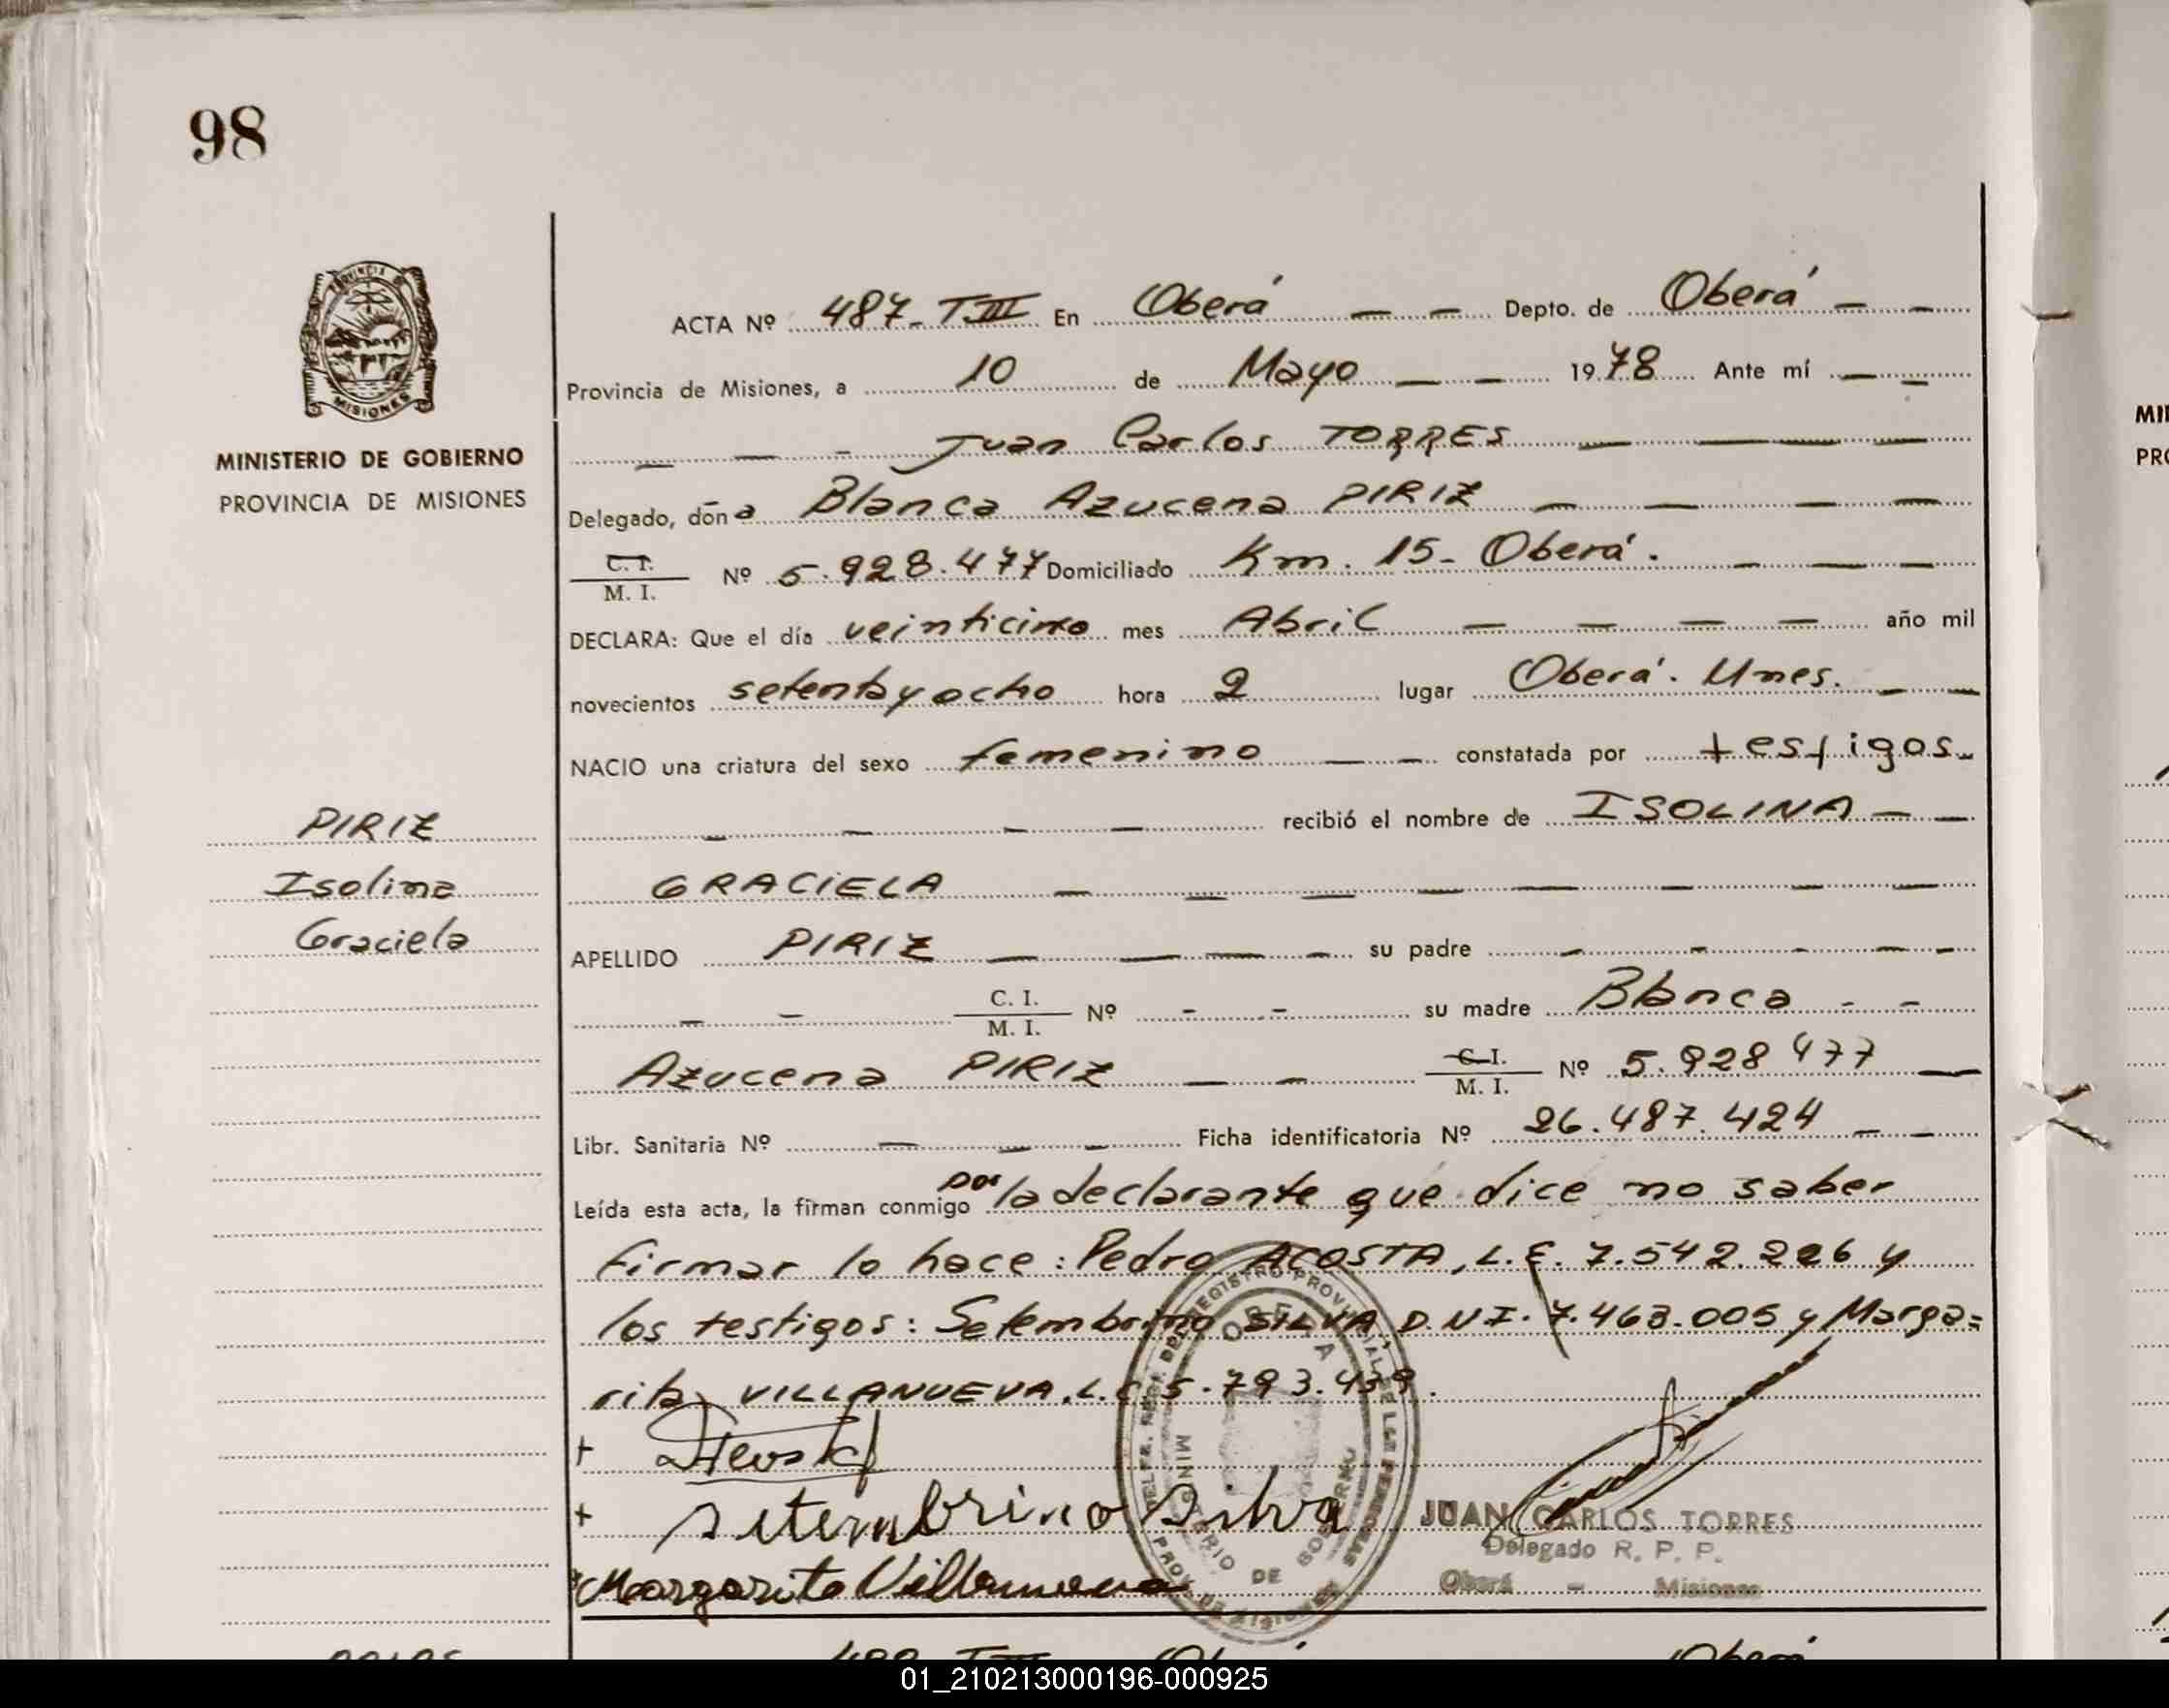 98
PROVINCIA DE
MISIONES
MINISTERIO DE GOBIERNO
PROVINCIA DE MISIONES
ACTA Nº 487-TIII En Oberá — — Depto. de Oberá — —
Provincia de Misiones, a 10 de Mayo — — 1978 Ante mí — —
— — - Juan Carlos TORRES — — — —
Delegado, dón a Blanca Azucena PIRIZ — — — —
C. I.
M. I. Nº 5.928.477 Domiciliado Km. 15- Oberá. — — —
DECLARA: Que el día veinticinco mes Abril — — — — año mil
novecientos setenta y ocho hora 2 lugar Oberá. Mnes. — —
NACIO una criatura del sexo femenino — — constatada por testigos-
PIRIZ
— — — — recibió el nombre de ISOLINA — —
Isolina
GRACIELA — — — — — — —
Graciela
APELLIDO PIRIZ — — — — su padre — - - — —
— — C. I.
M. I. Nº - - su madre Blanca - -
Azucena PIRIZ — — C. I.
M. I. Nº 5.928 477 —
Libr. Sanitaria Nº — — — Ficha identificatoria Nº 26.487.424 — —
Leída esta acta, la firman conmigo por la declarante que dice no saber
firmar lo hace: Pedro ACOSTA, L.E. 7.542.226 y
los testigos: Setembrino SILVA D.N.I. 7.463.005 y Marga=
rita VILLANUEVA. L.C 5.793.439.
+
+ Setembrino Silva
Margarita Villanueva
DEL REGISTRO PROVINCIAL DE LAS PERSONAS
OBERA
MINISTERIO DE GOBIERNO
JUAN CARLOS TORRES
Delegado R. P. P.
Oberá - Misiones
01_210213000196-000925